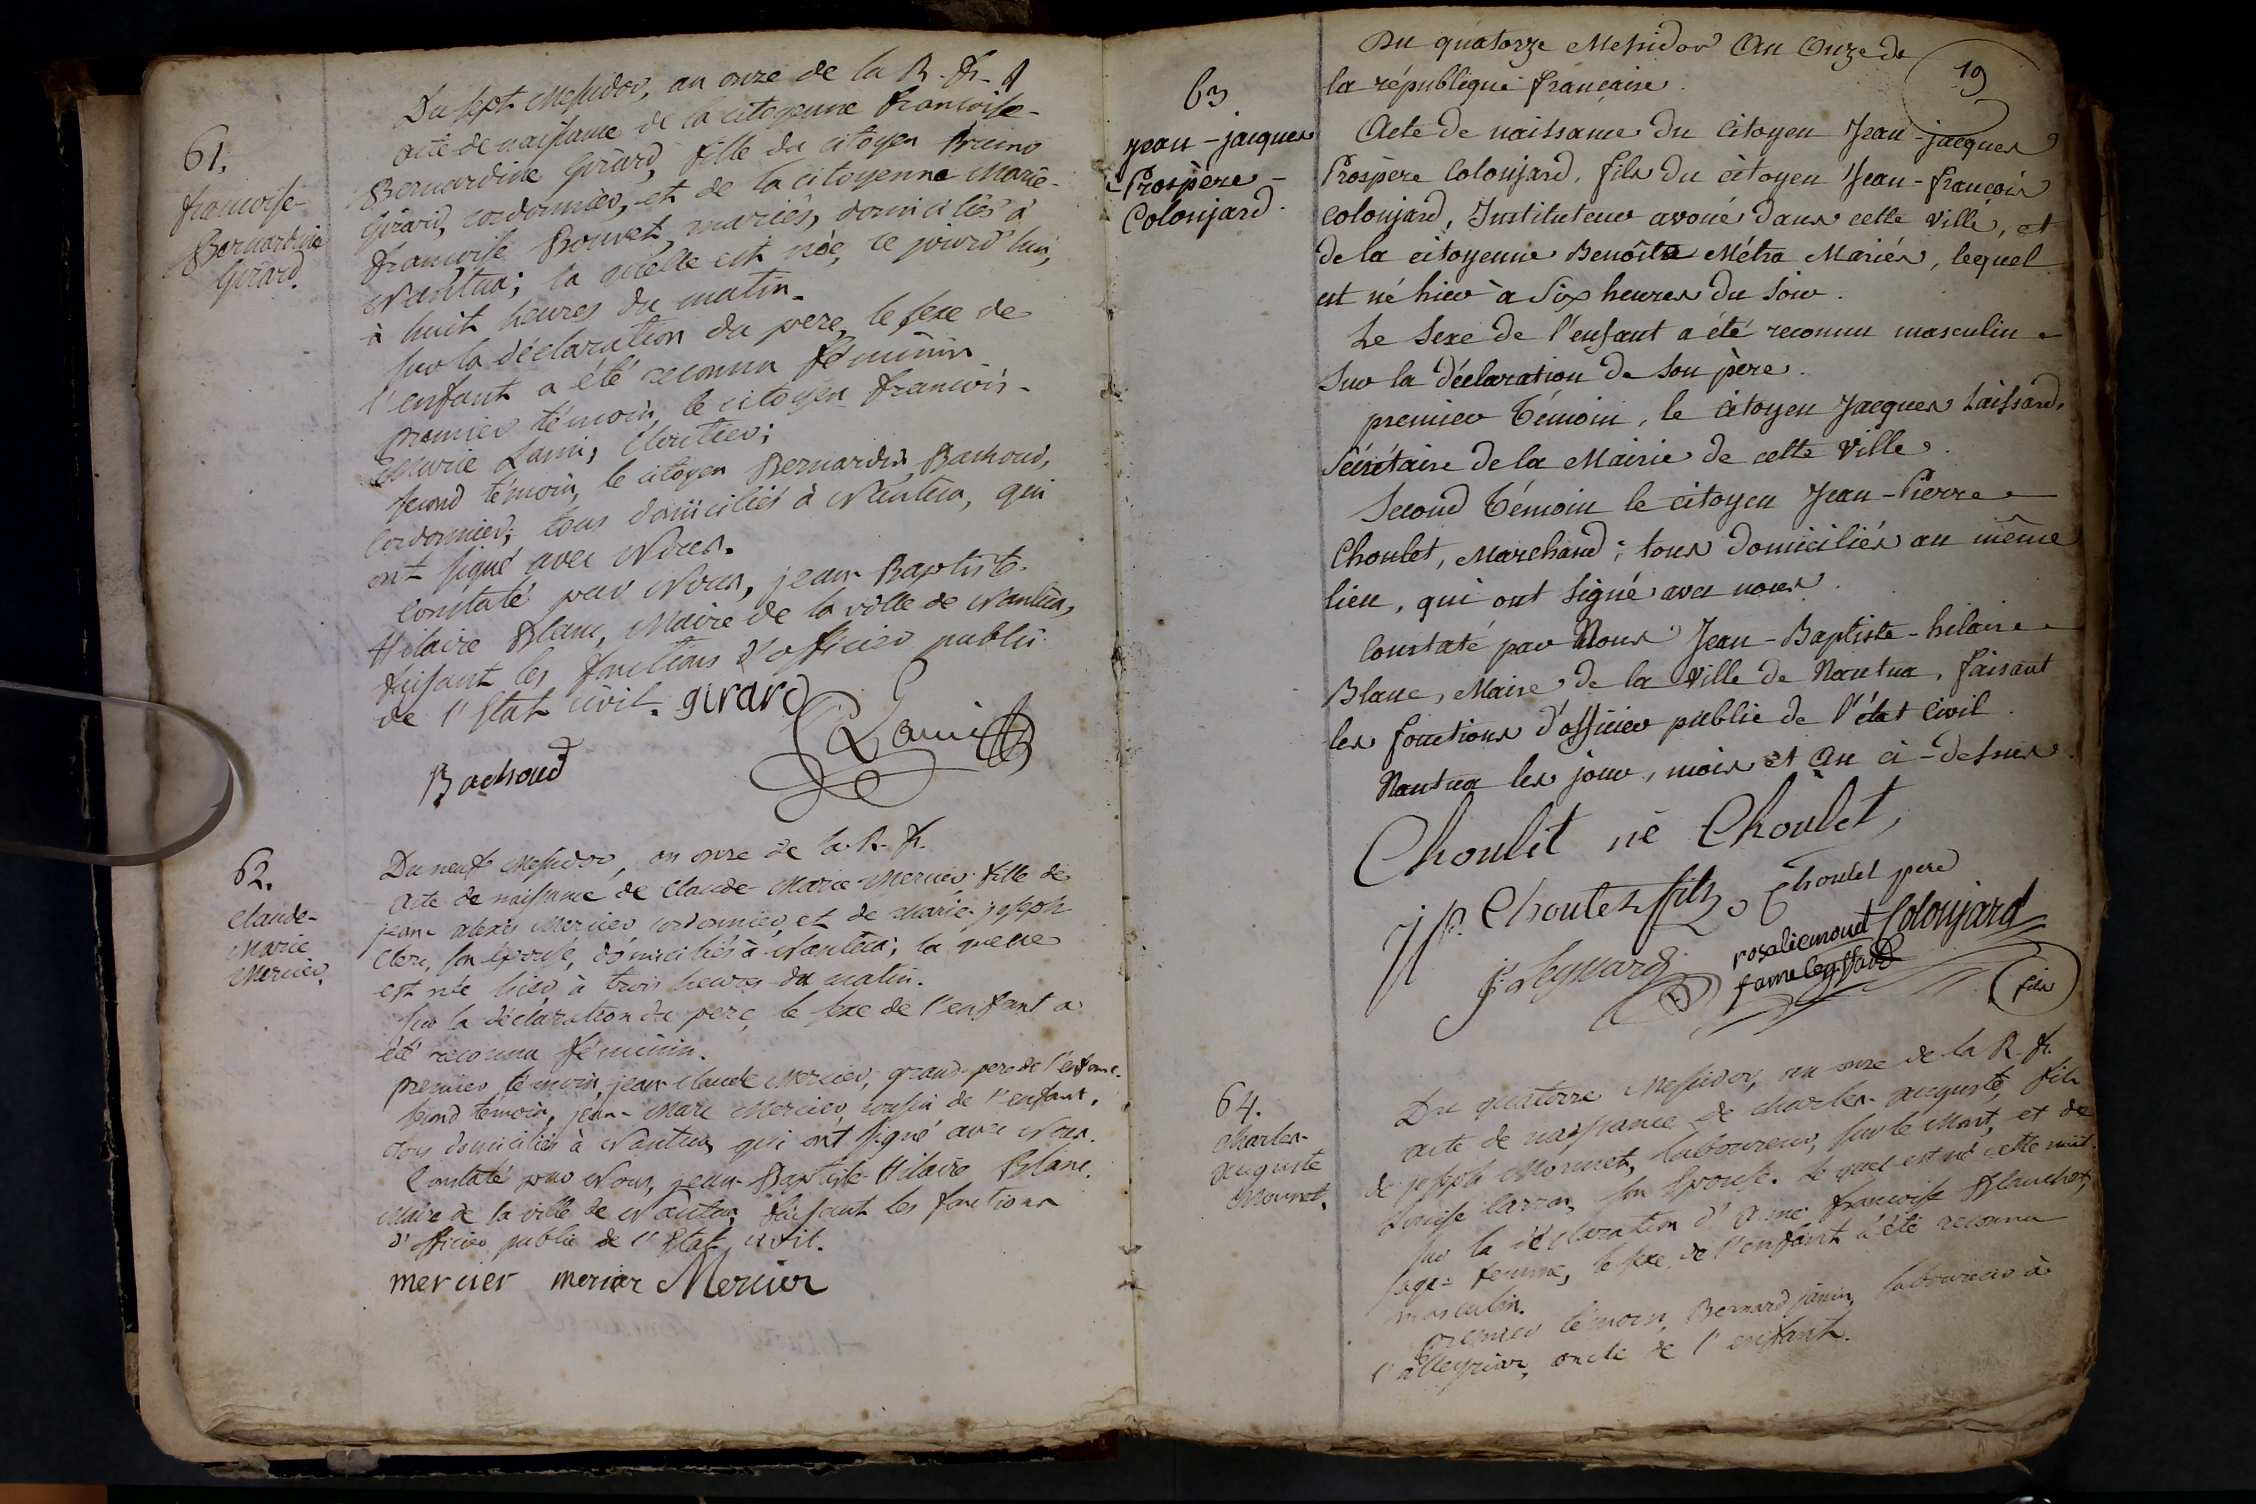 61.
francoise-
Bernardine
Girard.
Du sept Messidor, an onze de la R. fr.
acte de naissance de la citoyenne francoise-
Bernardine Girard, fille du citoyen Bruno
Girard, cordonnier, et de la citoyenne Marie-
francoise Bouvet, mariés, domiciliés à
Nantua; la quelle est née, ce jourd'hui,
à huit heures du matin.
sur la déclaration du pere, le sexe de
l'enfant a été reconnu féminin
premier témoin, le citoyen francois-
Marie Lami, Cloutier;
second témoin, le citoyen Bernardin Bachoud,
Cordonnier; tous domiciliés à Nantua, qui
ont signé avec Nous.
Constaté par Nous, jean-Baptiste-
Hilaire Blanc, Maire de la ville de Nantua,
faisant les fonctions d'officier public
de l'Etat civil. girard
Lami
Bachoud
62.
Claude-
Marie
Mercier.
Du neuf Messidor, an onze de la R. fr.
acte de naissance de Claude Marie Mercier fille de
jean alexis Mercier cordonnier, et de Marie-joseph
Clerc, son épouse, domiciliés à Nantua; la quelle
est née hier, à trois heures du matin.
sur la déclaration du pere, le sexe de l'enfant a
été reconnu féminin.
premier témoin, jean-Claude Mercier, grand-pere de l'enfant.
second temoin, jean-Marc Mercier, cousin de l'enfant.
tous domiciliés à Nantua, qui ont signé avec Nous.
Constaté par Nous, jean-Baptiste-Hilaire Blanc.
Maire de la ville de Nantua, faisant les fonctions
d'officier public de l'Etat civil.
mercier mercier Mercier
19
63
Jean-jacques
Prospère
Colonjard.
Du quatorze Messidor An Onze de
la république francaise.
Acte de naissance du Citoyen Jean-jacques
Prospère Colonjard, fils du citoyen Jean-françois
Colonjard, Instituteur avoué dans cette ville, et
de la citoyenne Benoîte Métra Mariés, lequel
est né hier à Six heures du Soir.
Le Sexe de l'enfant a été reconnu masculin
Sur la déclaration de Son père.
premier Témoin, le Citoyen Jacques Laissard,
Sécrétaire de la Mairie de cette Ville.
Second Témoin le citoyen Jean-Pierre
Choulet, Marchand; tous domiciliés au même
lieu, qui ont signé avec nous.
Constaté par Nous Jean-Baptiste-hilaire
Blanc, Maire de la Ville de Nantua, faisant
les fonctions d'officier public de l'état Civil.
Nantua les jour, mois et An ci-dessus.
Choulet né Choulet,
J p. Choulet fils Choulet pere
rosaliemonet Colonjard
fils
64.
Charles-
Auguste
Monnet.
Du quatorze Messidor, an onze de la R. fr.
acte de naissance de charles-auguste, fils
de joseph Monnet, laboureur, sur le Mont, et de
Louise Carron, son épouse. Lequel est né cette nuit.
sur la déclaration d'Anne francoise Blanchet,
sage-femme, le sexe de l'enfant a été reconnu
masculin.
premier témoin, Bernard janin, laboureur à
l'alleyriat, oncle de l'enfant.